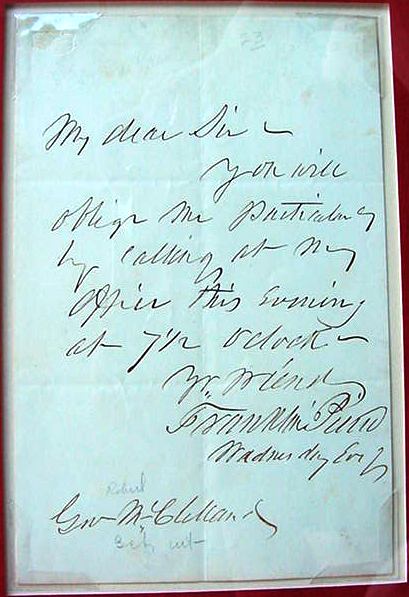 23
My dear Sir –
You will
oblige me particularly
by calling at my
office this Evening
at 7 1/2 O'clock –
Yr friend
Franklin Pierce
Wednesday Eve
Robert
Gov McClelland
Sec. Int